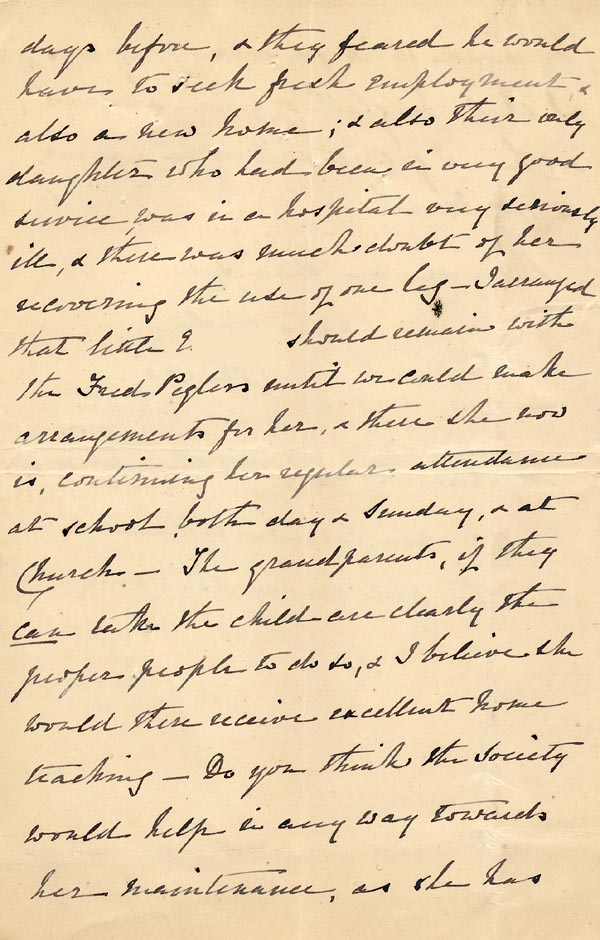 days before, & they feared he would
have to seek fresh employment, &
also a new home; & also their only
daughter who had been in very good
service, was in a hospital very seriously
ill, & there was much doubt of her
recovering the use of one leg – I arranged
that little E. should remain with
the Fred Peglers until we could make
arrangements for her, & there she now
is, continuing her regular attendance
at school both day & Sunday, & at
Church – The grandparents, if they
can take the child are clearly the
proper people to do so, & I believe she
would there receive excellent home
teaching – Do you think the Society
would help in any way towards
her maintenance, as she has